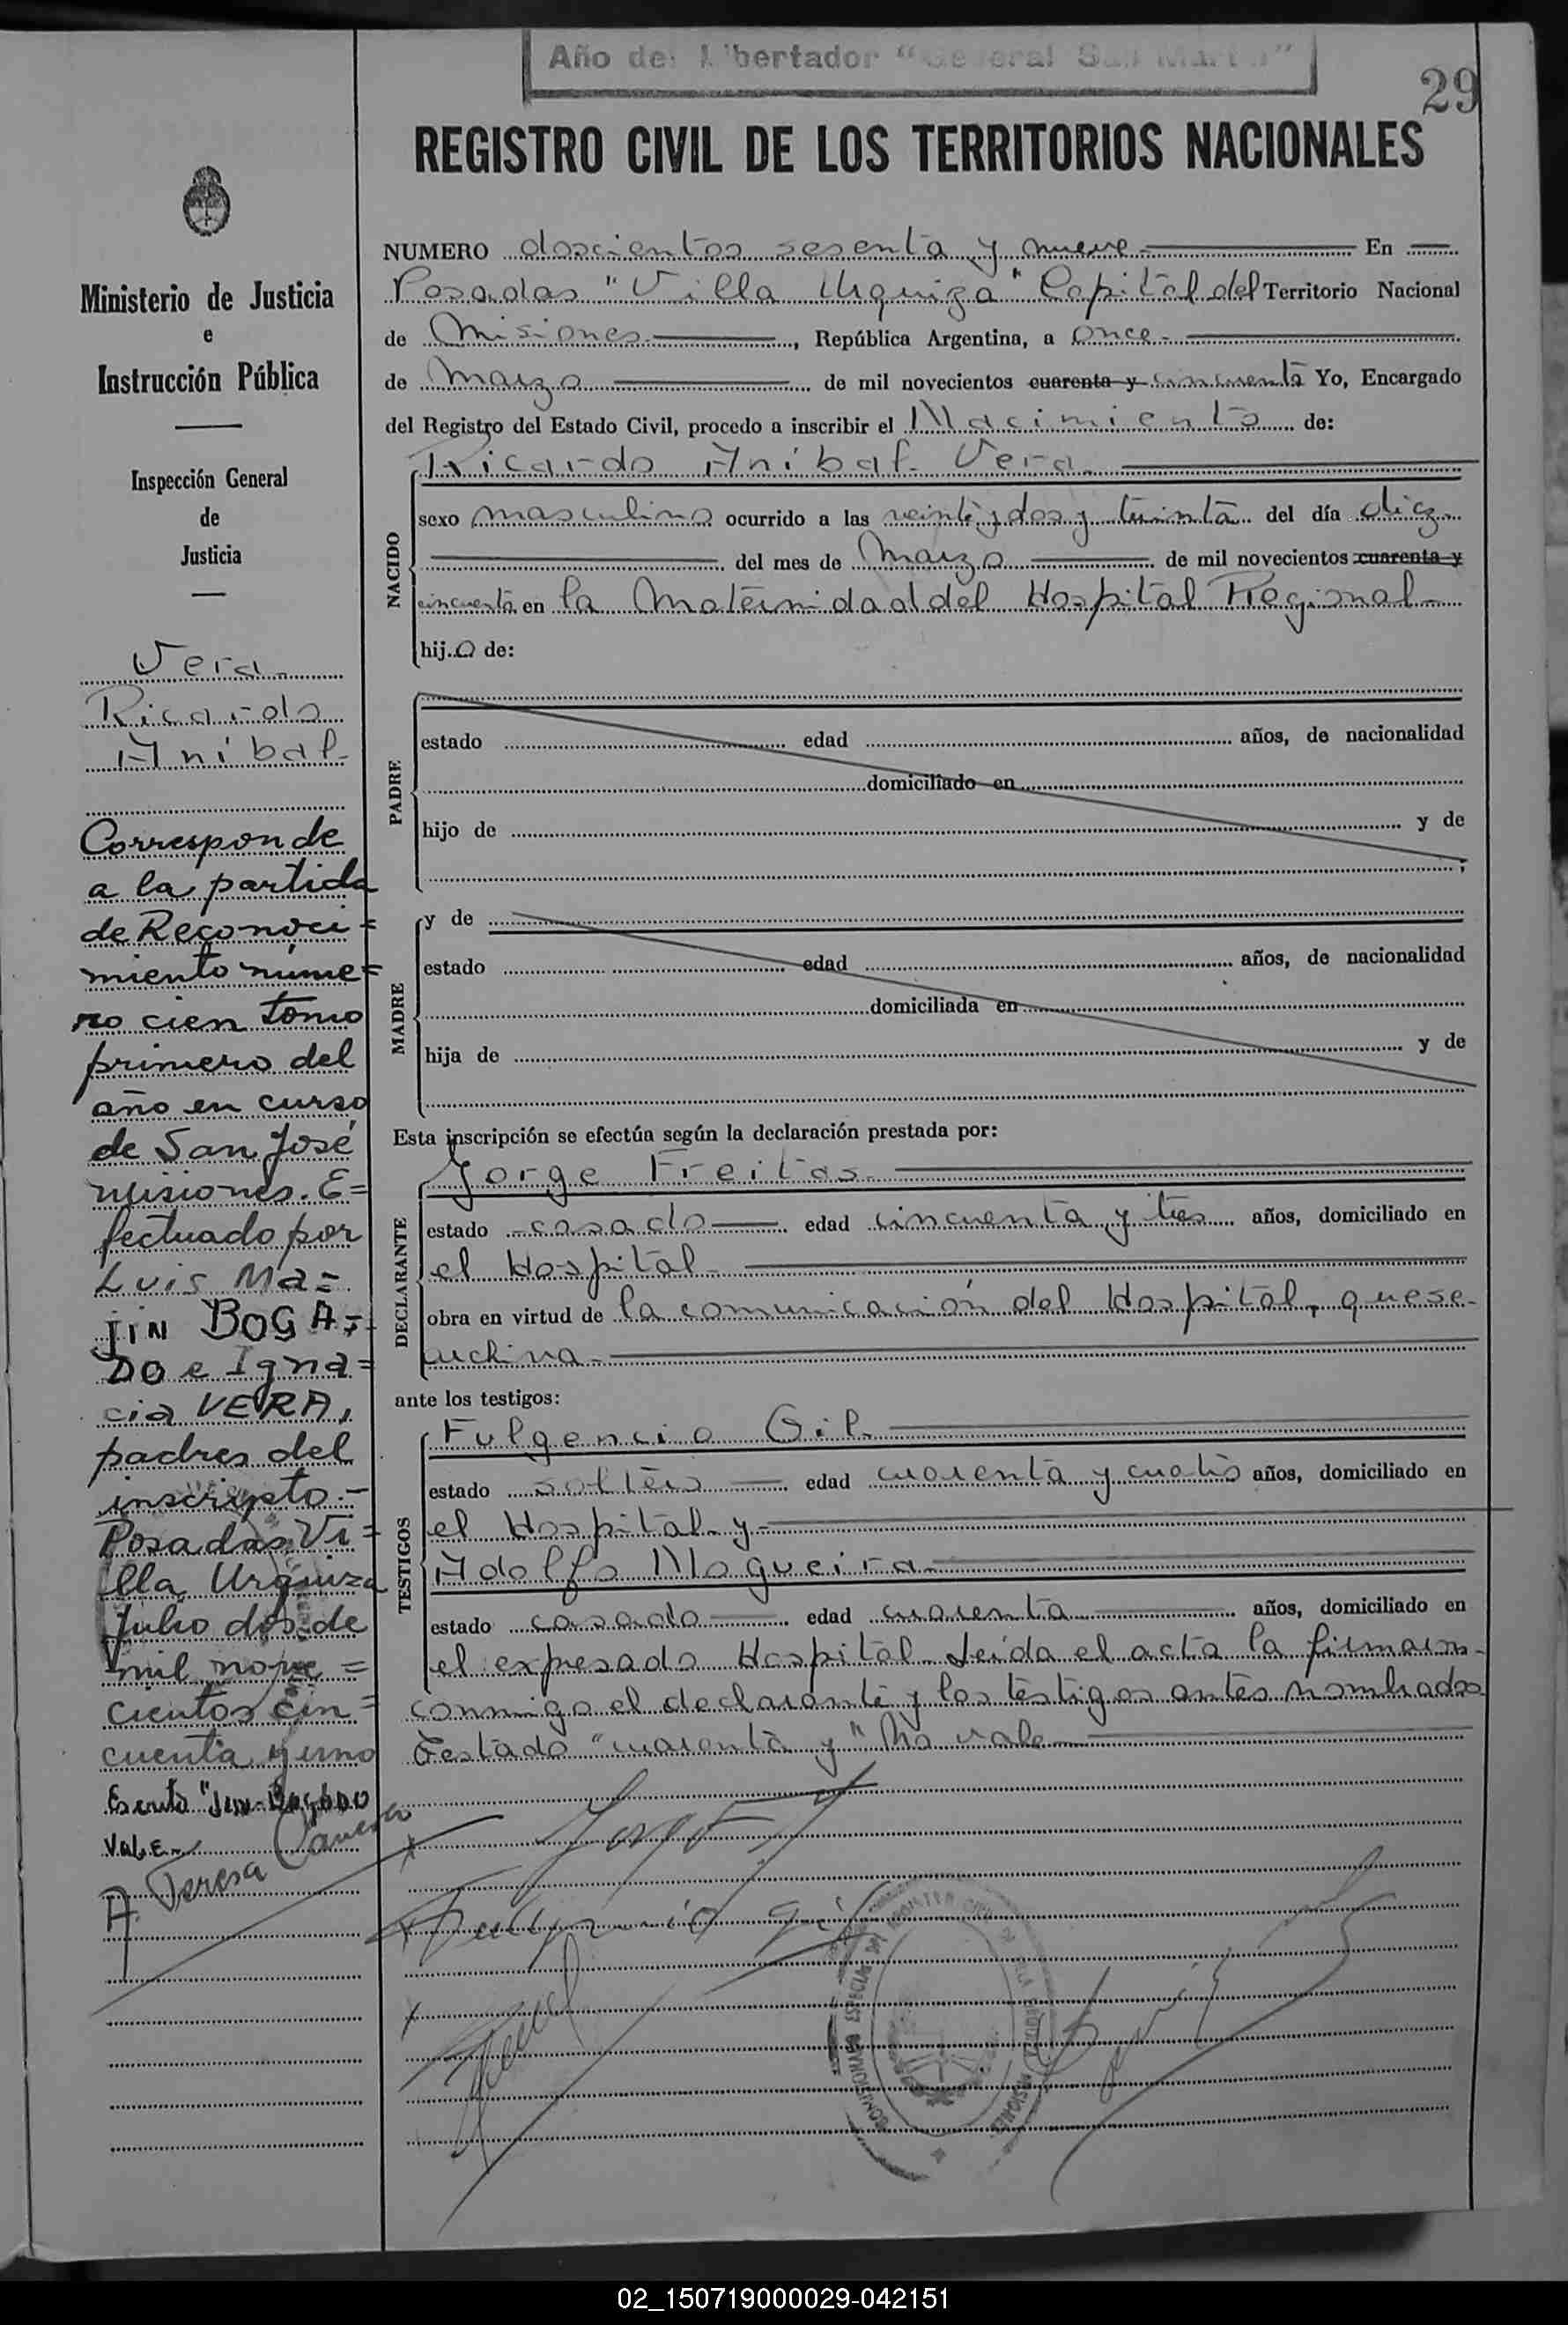 Año del Libertador "General San Martín"
29
REGISTRO CIVIL DE LOS TERRITORIOS NACIONALES
Ministerio de Justicia
e
Instrucción Pública
Inspección General
de
Justicia
Vera
Ricardo
Anibal
Corresponde
a la partida
de Reconoci=
miento núme=
ro cien tomo
primero del
año en curso
de San José
Misiones. E=
fectuado por
Luis Ma=
JIN BOGA=
DO e Igna=
cia VERA,
padres del
inscripto.-
Posadas Vi=
lla Urquiza
Julio dos de
mil nove=
cientos cin=
cuenta y uno
Vale
A. Teresa
NUMERO doscientos sesenta y nueve En
Posadas "Villa Urquiza" Capital del Territorio Nacional
de Misiones, República Argentina, a once
de Marzo de mil novecientos cuarenta y cincuenta Yo, Encargado
del Registro del Estado Civil, procedo a inscribir el Nacimiento de:
Ricardo Anibal Vera
NACIDO
sexo masculino ocurrido a las veintiydos y treinta del día diez
del mes de Marzo de mil novecientos cuarenta y
cincuenta en la Maternidad del Hospital Regional
hijo de:
PADRE
estado edad años, de nacionalidad
domiciliado en
hijo de y de
MADRE
y de
estado edad años, de nacionalidad
domiciliada en
hija de y de
Esta inscripción se efectúa según la declaración prestada por:
Jorge Freitas
DECLARANTE
estado casado edad cincuenta y tres años, domiciliado en
el Hospital
obra en virtud de la comunicación del Hospital, que se
archiva
ante los testigos:
TESTIGOS
Fulgencio Gil
estado soltero edad cuarenta y cuatro años, domiciliado en
el Hospital y
Adolfo Nogueira
estado casado edad cuarenta años, domiciliado en
el expresado Hospital Leída el acta la firmaron
conmigo el declarante y los testigos antes nombrados
Testado "cuarenta y" No vale
Fulgencio Gil
02_150719000029-042151